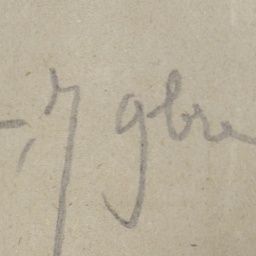 -, 7 9bre